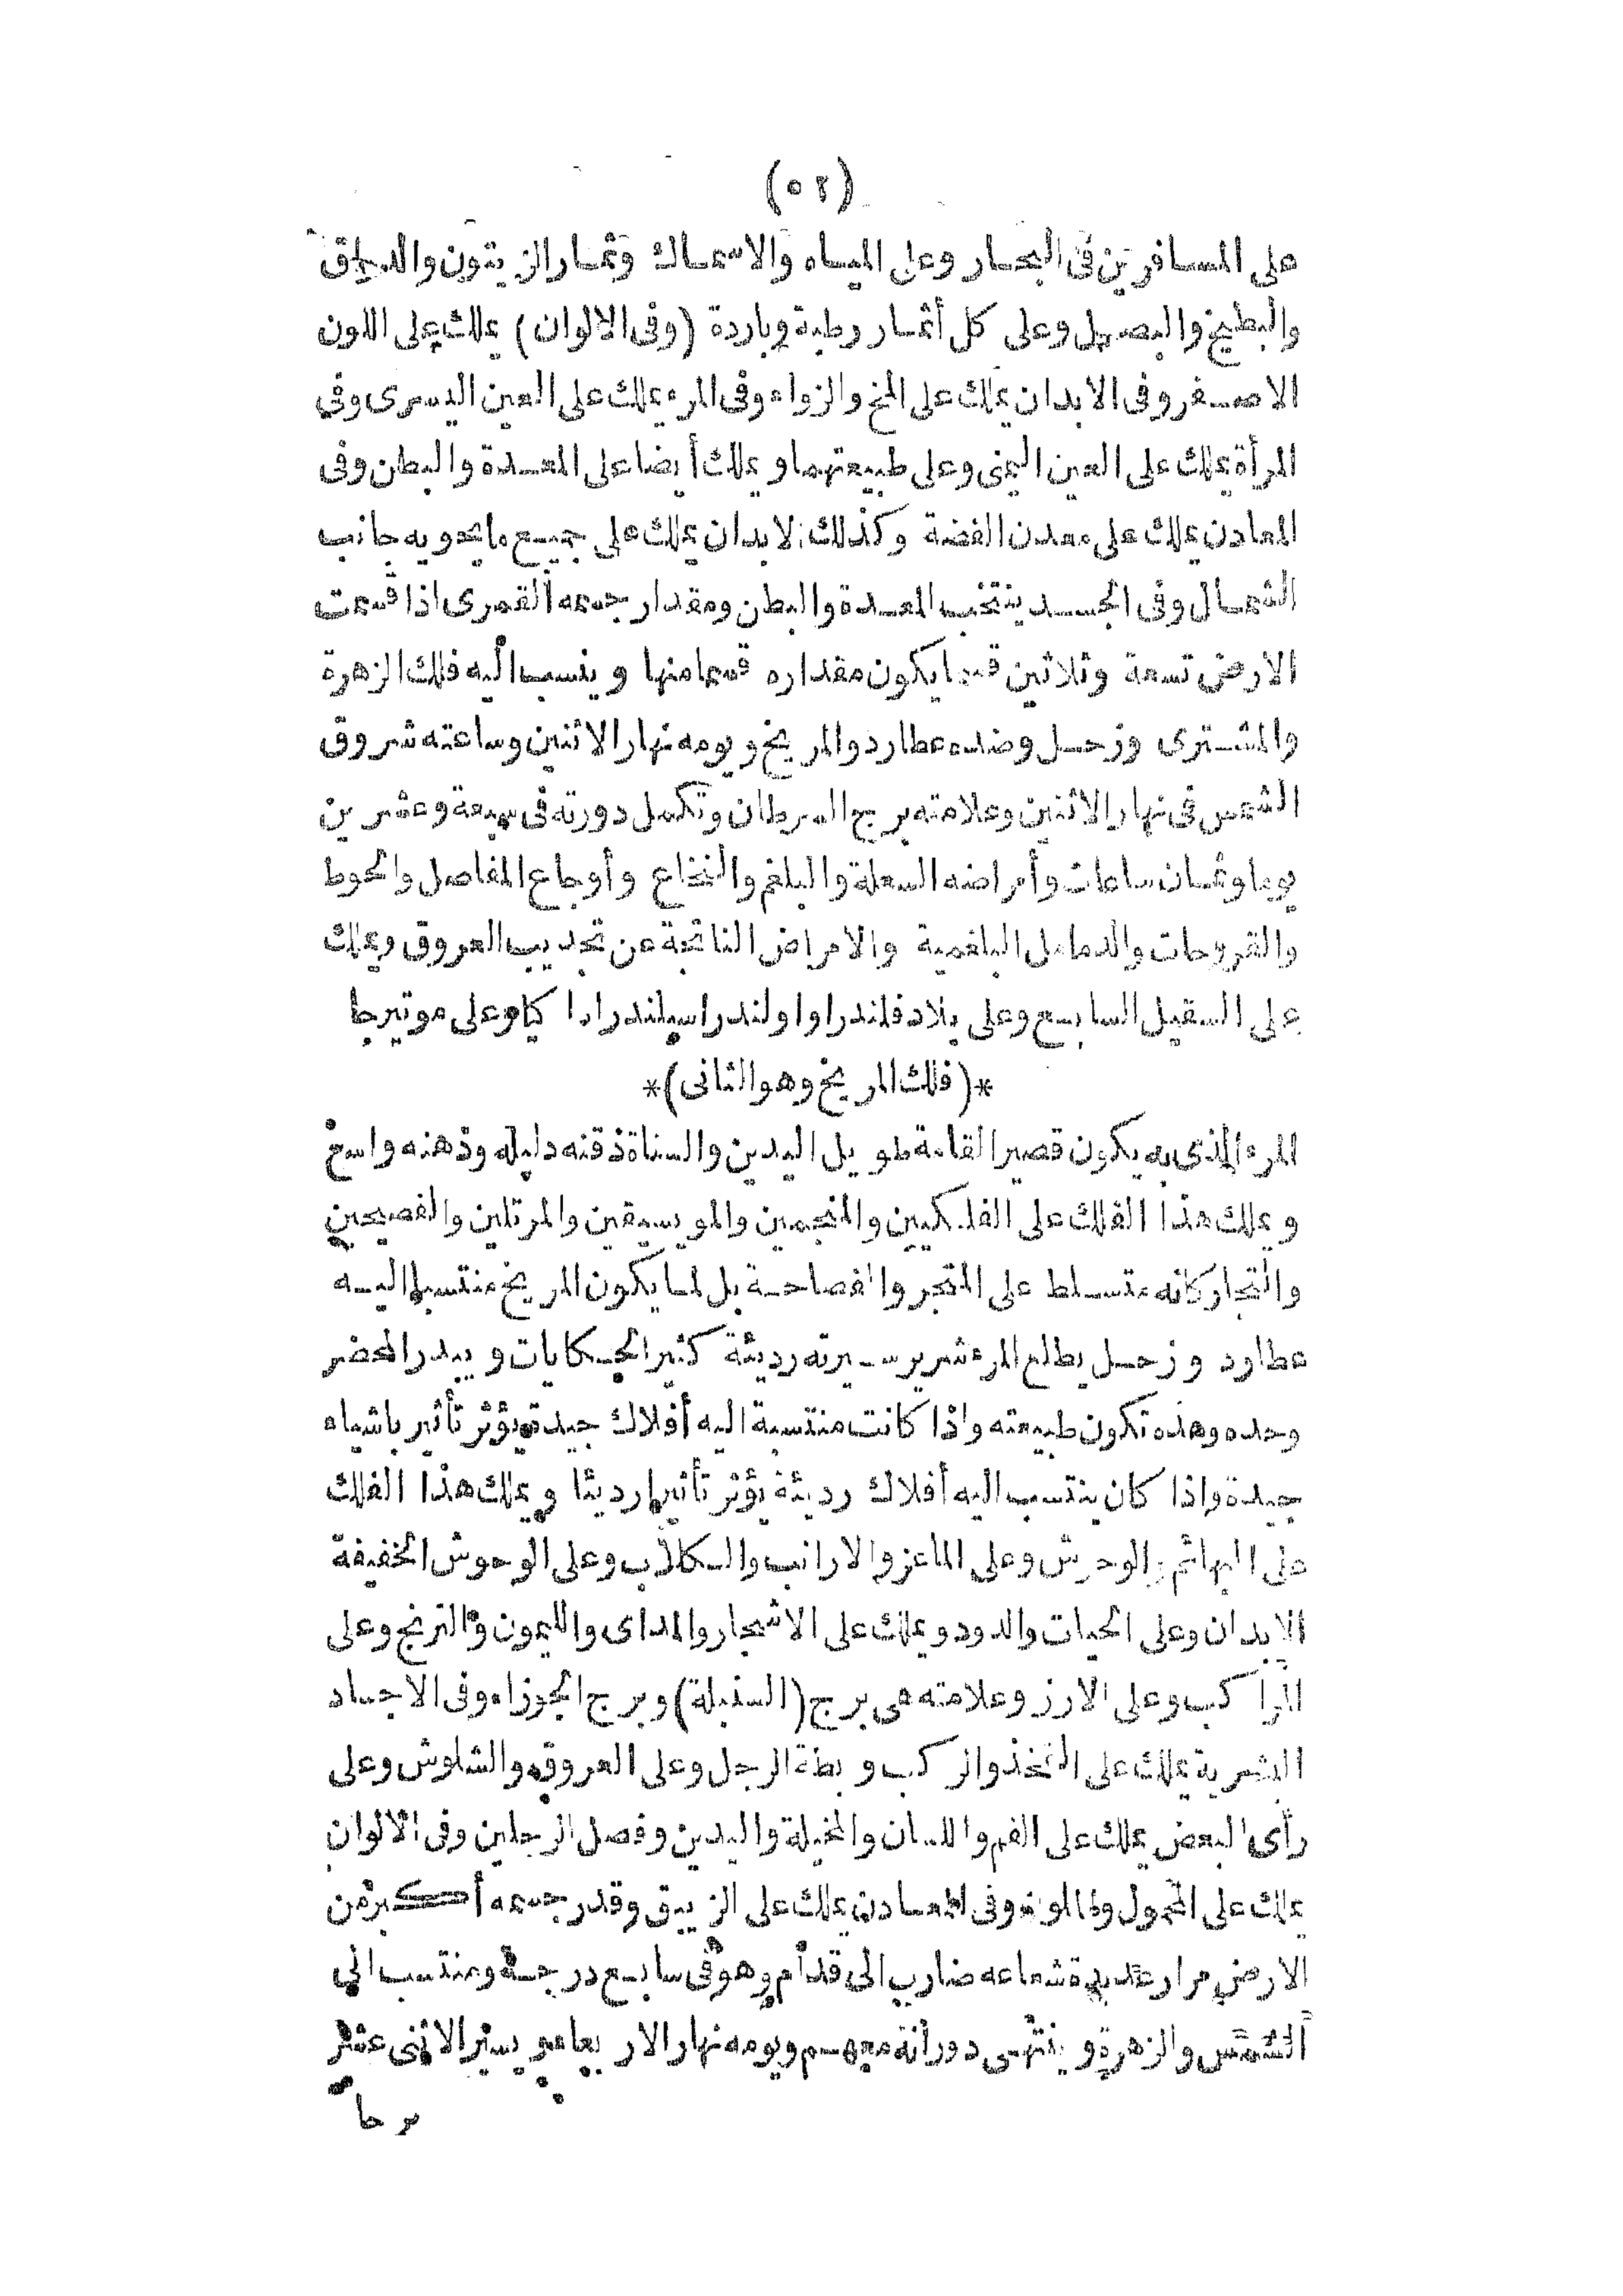 (٥٢)
على المسافرين فى البحار وعلى المياه والاسماك وثمار الزيتون والدراق
والبطيخ والبصل وعلى كل أثمار رطبة وباردة (وفى الالوان) يملك على اللون
الاصفر وفى الابدان يملك على المخ والزواء وفى المرء يملك على العين اليسرى وفى
المرأة يملك على العين اليمنى وعلى طبيعتهما ويملك أيضا على المعدة والبطن وفى
المعادن يملك على معدن الفضة وكذلك الابدان يملك على جميع ما يحويه جانب
الشمال وفى الجسد ينتخب المعدة والبطن ومقدار جسمه القمرى اذا قسمت
الارض تسعة وثلاثين قسما يكون مقداره قسما منها وينسب اليه فلك الزهرة
والمشترى وزحل وضده عطارد والمريخ ويومه نهار الاثنين وساعته شروق
الشمس فى نهار الاثنين وعلامته برج السرطان وتكمل دورته فى سبعة وعشرين
يوما وثمان ساعات وأمراضه السعلة والبلغم والنخاع وأوجاع المفاصل والحوط
والقروحات والدمامل البلغمية والامراض الناتجة عن تجديب العروق ويملك
على السقيل السابع وعلى بلاد فلندرا واولندرا سيلندرادا كيا وعلى موتيرجا
*(فلك المريخ وهو الثانى)*
المرء الذى به يكون قصير القامة طويل اليدين والسناة ذقنه دليله وذهنه واسع
ويملك هذا الفلك على الفلكيين والمنجمين والمويسيقين والمرتلين والفصيحين
والتجار كانه متسلط على المتجر والفصاحة بل لما يكون المريخ منتسبا اليه
عطاود وزحل يطلع المرء شرير سيرته رديئة كثير الحكايات ويبدر المحضر
وحده وهذه تكون طبيعته واذا كانت منتسبة اليه أفلاك جيدة يؤثر تأثير باشياه
جيدة واذا كان ينتسب اليه أفلاك رديئة يؤثر تأثيرا رديئا ويملك هذا الفلك
على البهائم والوحش وعلى الماعز والارانب والكلاب وعلى الوحوش الخفيفة
الابدان وعلى الحيات والدود ويملك على الاشجار والمداى والليمون والترنج وعلى
المراكب وعلى الارز وعلامته هى برج (السنبلة) وبرج الجوزاء وفى الاجساد
البشرية يملك على الفخذ والركب وبطة الرجل وعلى العروق والشلوش وعلى
رأى البعض يملك على الفم واللسان والمخيلة واليدين وفصل الرجلين وفى الالوان
يملك على المحمول والملون وفى المعادن يملك على الزيبق وقدر جسمه أكبر من
الارض مرار عديدة شعاعه ضارب الى قدام وهو فى سابع درجة ومنتسب الى
الشمس والزهرة وينتهى دورانه معهم ويومه نهار الاربعاء ويسير الاثنى عشر
برجا